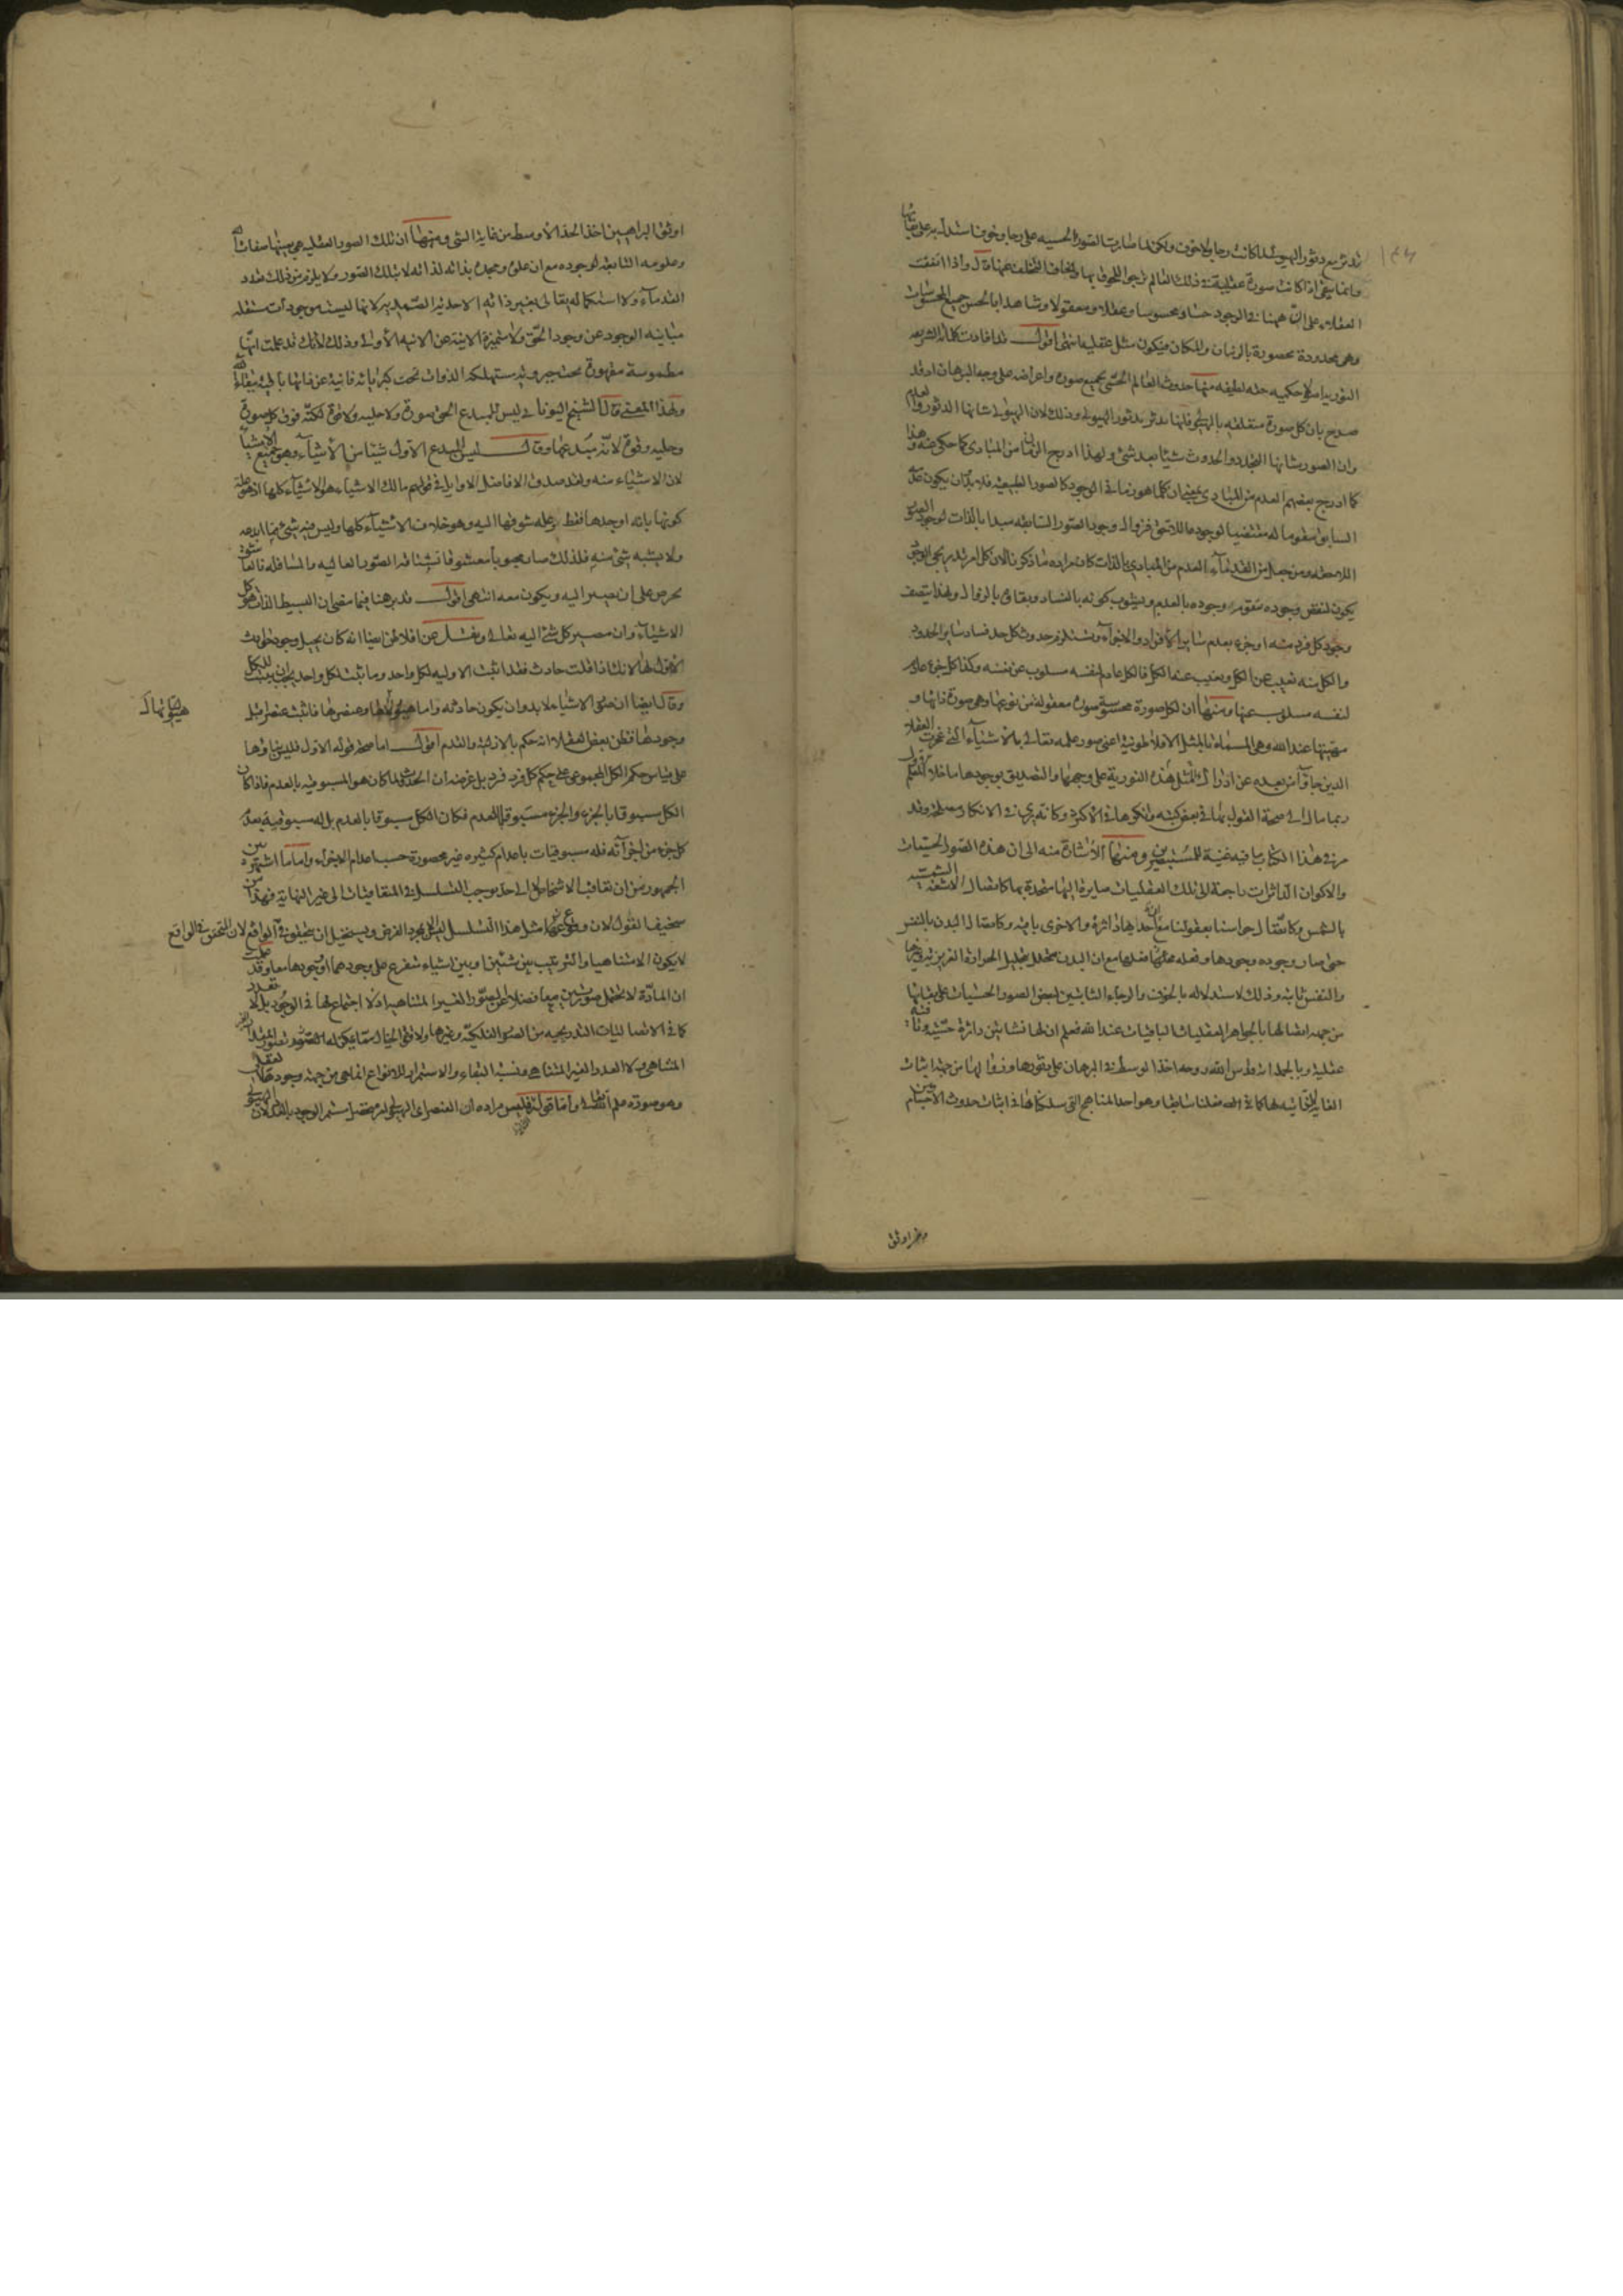 تدثر مع دثور الهيولى لما كانت رجاء ولا خوف ولكن لما صارت الصور الحسيه على رجا وخوف استدل به على بقائها
وانما يبقى اذا كانت صورة عقلية فى ذلك العالم ترجو اللحوق بها وتخاف التخلف عنها قال واذا اتفقت
العقلاء على ان ههنا فى الوجود حسا ومحسوسا وعقلا ومعقولا وشاهدنا بالحس جميع المحسوسات
وهى محدودة محصورة بالزمان والمكان فيكون مثل عقليه انتهى اقول قد افادت كلماته الشريفه
النوريه حكميه جمة لطيفه منها حدوث العالم الحسى بجميع صوره واعراضه على وجه البرهان اذ قد
صرح بان كل صورة متعلقه بالهيولى فانها تدثر بدثور الهيولى وذلك لان الهيولى شانها الدثور والعدم
وان الصور شانها التجدد والحدوث شيئا بعد شئ ولهذا ادرج الزمان من المبادى كما حكى عنه وهذا
كما ادرج بعضهم العدم من المبادى يعنى ان كلما هو زمانى الوجود كالصور الطبيعيه فلا بد ان يكون عدم
السابق مقوما له مقتضيا لوجود ما للاحق فزوال وجود الصور السابقه مبدا بالذات لوجود الصور
اللاحقه ومن جعل من القدماء العدم من المبادى بالذات كان مراده ما ذكرنا لان كل امر تدريجى الوجود
يكون لنقص وجوده متقوم وجوده بالعدم ويشوب كونه بالفساد وبقاؤه بالزوال ولهذا يتصف
وجود كل فرد منه او جزء بعدم سائر الافراد والاجزاء ويستلزم حدوث كل حد فساد سائر الحدود
والكل منه تغيب عن الكل ويغيب عنه الكل فالكل عادم لنفسه مسلوب عن نفسه وكذا كل جزء عادم
لنفسه مسلوب عنها ومنها ان لكل صورة محسوسة صورة معقولة من نوعها وهى صورة ذاتها و
مهيتها عند الله وهى المسماة بالمثل الافلاطونية اعنى صور علمه تعالى بالاشياء التى عجزت العقلاء
الذين جاؤا من بعده عن ادراك المثل هذه النورية على وجهها والتصديق بوجودها ما خلا المعلم الاول
ربما مال الى صحة القول بها فى بعض كتبه وانكرها فى الاكثر وكانه يرى فى الانكار مصلحة وقد
مر فى هذا الكتاب ما فيه غنية للمستبصرين ومنها الاشارة منه الى ان هذه الصور الحسيات
والاكوان الداثرات راجعة الى تلك العقليات صايرة اليها متحدة بها كاتصال الاشعة الشمسية
بالشمس وكاتصال حواسنا بعقولنا مع ان احداها داثرة والاخرى باقيه وكاتصال البدن بالنفس
حتى صار وجوده وجودها وفعله فعلها مع ان البدن متحلل بتحليل الحرارة الغريزيه وغيرها
والنفس ثابته وذلك لاستدلاله بالخوف والرجاء الثابتين لبعض الصور الحسيات على بقائها
من جهه اتصالها بالجواهر العقليات الباقيات عند الله فعلم ان لها نشاتين داثرة حسية وباقية
عقلية وبالجملة افلاطن اخذ الوسط فى البرهان على دثورها وزوالها من جهة اثبات
الغاية الذاتيه لها كما فصلنا سابقا وهو احد المناهج التى سلكناها فى اثبات حدوث الاجسام
وهو اوثق
١٤٦
اوثق البراهين اخذ الحد الاوسط من غاية الشئ ومنها ان تلك الصور العقليه هى بعينها صفات الله
وعلومه التابعه لوجوده مع ان علوه ومجده بذاته لذاته لا بتلك الصور ولا يلزم من ذلك تعدد
القدماء ولا استكماله تعالى بغير ذاته الاحديه الصمديه لانها ليست موجودات مستقله
مباينه الوجود عن وجود الحق ولا متميزة الانية عن الانيه الاولى وذلك لانك قد علمت انها
مطموسة مقهورة تحت جبروته مستهلكة الذوات تحت كبريائه فانية عن ذاتها باقيه ببقاء الله
ولهذا المعنى قال الشيخ اليونانى ليس للمبدع الحق صورة ولا حليه ولا قوة لكنه فوق كل صورة
وحليه وقوة لانه مبدعها وقال ليس المبدع الاول شيئا من الاشياء وهو جميع الاشياء
لان الاشياء منه ولقد صدق الافاضل الاوايل فى قولهم مالك الاشياء هو الاشياء كلها اذ هو علة
كونها بانه اوجدها فقط وعلة شوقها اليه وهو خلاف الاشياء كلها وليس فيه شئ مما ابدعه
ولا يشبه شئ منه فلذلك صار محبوبا معشوقا تشتاقه الصور العاليه والسافله فالعاشق
يحرص على ان يصير اليه ويكون معه انتهى اقول قد برهنا فيما مضى ان البسيط الذات هو كل
الاشياء وان مصير كل شئ اليه تعالى ونقل عن افلاطن ايضا انه كان يحيل وجود حوادث
لا اول لها لانك اذا قلت حادث فقد اثبت الاوليه لكل واحد وما ثبت لكل واحد يجب ان يثبت للكل
وقال ايضا ان صور الاشياء لا بد وان يكون حادثه واما هيولاها وعنصرها فاثبت عنصرا قبل
هيولاها
وجودها فظن بعض العقلاء انه حكم بالازليه والقدم اقول اما صحة قوله الاول فليس بناؤها
على قياس حكم الكل المجموعى على حكم كل فرد فرد بل غرضه ان الحدوث لما كان هو المسبوقيه بالعدم فاذا كان
الكل مسبوقا بالجزء والجزء مسبوقا بالعدم فكان الكل مسبوقا بالعدم بل له مسبوقية بعدم
كل جزء من اجزائه فله مسبوقيات باعدام كثيره غير محصورة حسب اعدام الاجزاء واما ما اشتهر بين
الجمهور من ان تعاقب الاشخاص لا الى حد يوجب التسلسل فى المتعاقبات الى غير النهاية فهذا من
سخيف القول لان وقوع مثل هذا التسلسل ليس الا بمجرد الفرض ويستحيل ان يتحقق فى الواقع لان المتحقق فى الواقع
لا يكون الا متناهيا والترتيب بين شيئين او بين اشياء متفرع على وجودهما او وجودها معا وقد علمت
ان المادة لا تحتمل صورتين معا فضلا عن الصور الغير المتناهيه اذ لا اجتماع لها فى الوجود بل لا تعدد
كما فى الاتصاليات التدريجيه من الصور الفلكيه وغيرها
المتناهى ولا العدد الغير المتناهى ونسبة البقاء والاستمرار للانواع انما هى من جهة وجودها العقلى
وهو صورة علم الله تعالى واما قوله فليس مراده ان العنصر اى الهيولى